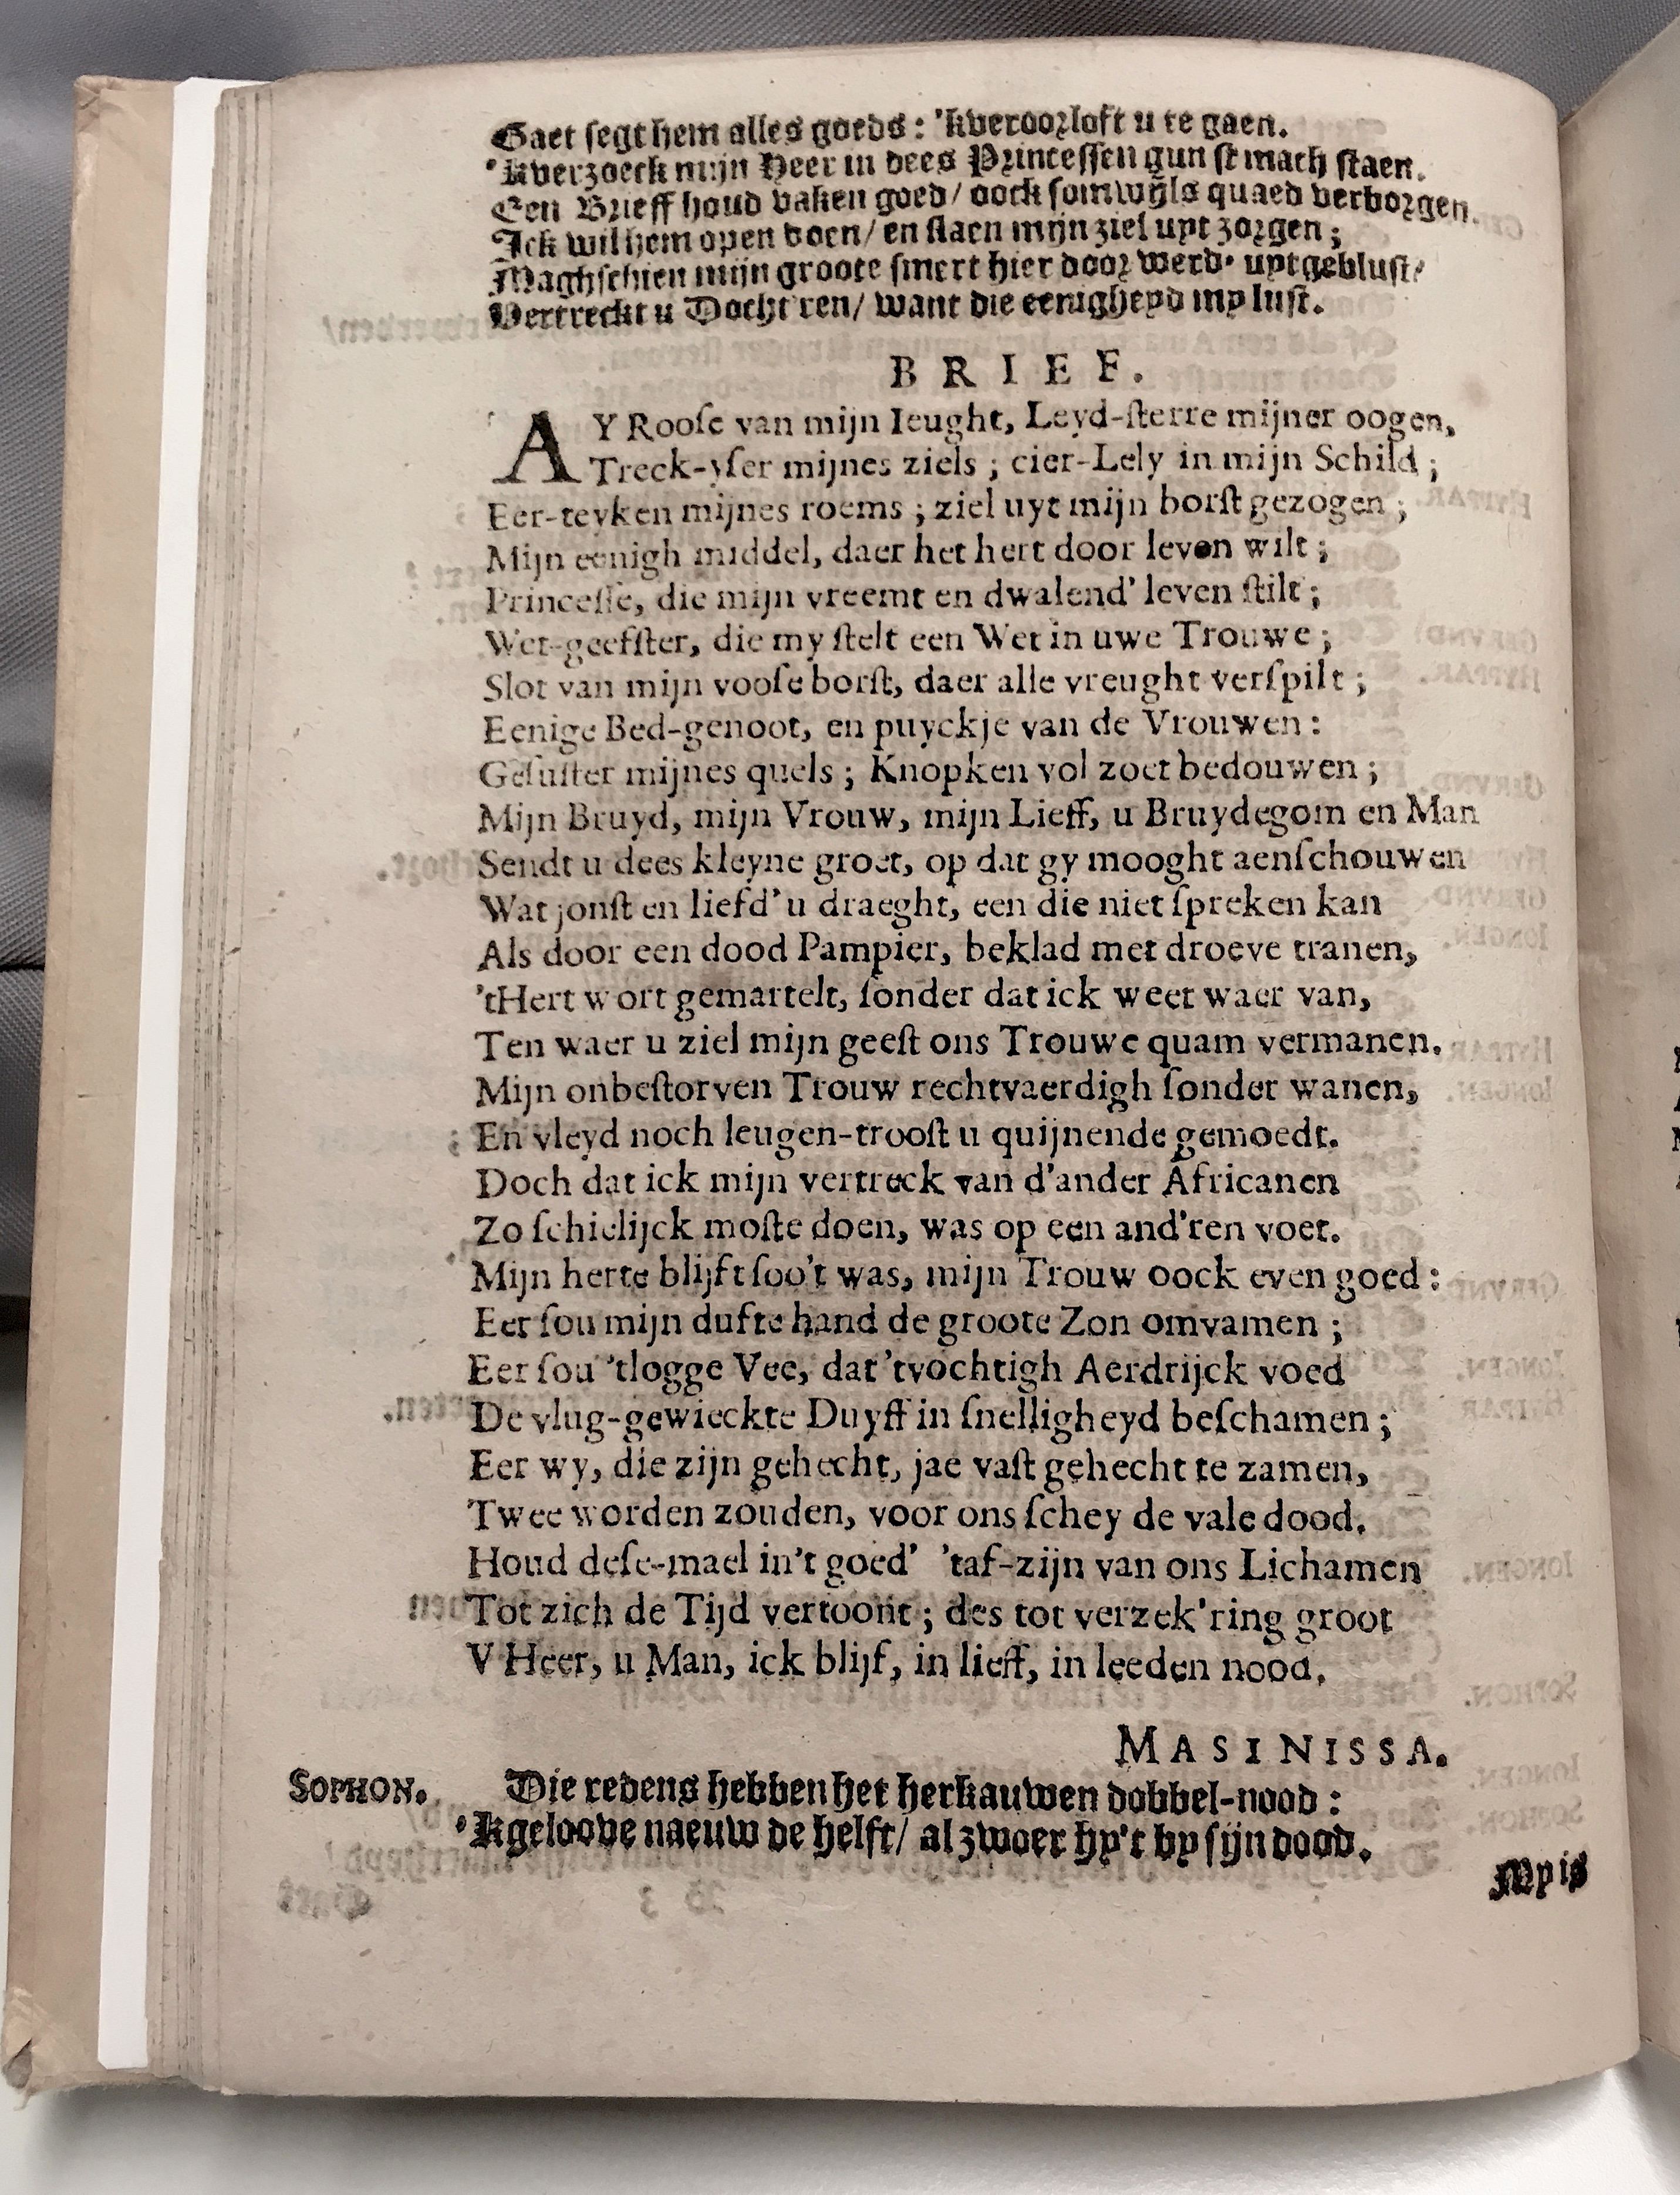 Gaet ſegt hem alles goeds: 'kveroorloft u te gaen.
'kverzoeck mijn Heer in dees Princeſſen gunſt mach ſtaen.
Een Brieff houd vaken goed/ oock ſomwijls quaed verborgen.
Ick wil hem open doen/ en ſlaen mijn ziel uyt zorgen;
Maghſchien mijn groote ſmert hier door werd uytgebluſt/
Vertreckt u Docht'ren/ want die eenigheyd my luſt.
BRIEF.
AY Rooſe van mijn Ieught, Leyd-ſterre mijner oogen,
Treck-yſer mijnes ziels; cier-Lely in mijn Schild;
Eer-teyken mijnes roems; ziel uyt mijn borſt gezogen;
Mijn eenigh middel, daer het hert door leven wilt;
Princeſſe, die mijn vreemt en dwalend' leven ſtilt;
Wet-geefſter, die my ſtelt een Wet in uwe Trouwe;
Slot van mijn vooſe borſt, daer alle vreught verſpilt;
Eenige Bed-genoot, en puyckje van de Vrouwen:
Geſuſter mijnes quels; Knopken vol zoet bedouwen;
Mijn Bruyd, mijn Vrouw, mijn Lieff, u Bruydegom en Man
Sendt u dees kleyne groet, op dat gy mooght aenſchouwen
Wat jonſt en liefd' u draeght, een die niet ſpreken kan
Als door een dood Pampier, beklad met droeve tranen,
'tHert wort gemartelt, ſonder dat ick weet waer van,
Ten waer u ziel mijn geeſt ons Trouwe quam vermanen.
Mijn onbeſtorven Trouw rechtvaerdigh ſonder wanen,
En vleyd noch leugen-trooſt u quijnende gemoedt.
Doch dat ick mijn vertreck van d'ander Africanen
Zo ſchielijck moſte doen, was op een and'ren voet.
Mijn herte blijft ſoo't was, mijn Trouw oock even goed:
Eer ſou mijn dufte hand de groote Zon omvamen;
Eer ſou 'tlogge Vee, dat 'tvochtigh Aerdrijck voed
De vlug-gewieckte Duyff in ſnelligheyd beſchamen;
Eer wy, die zijn gehecht, jae vaſt gehecht te zamen,
Twee worden zouden, voor ons ſchey de vale dood.
Houd deſe-mael in't goed' 'taf-zijn van ons Lichamen
Tot zich de Tijd vertoont; des tot verzek'ring groot
V Heer, u Man, ick blijf, in lieff, in leeden nood.
MASINISSA.
SOPHON. Die redens hebben het herkauwen dobbel-nood:
'Kgeloove naeuw de helft/ al zwoer hy't by ſijn dood.
My is